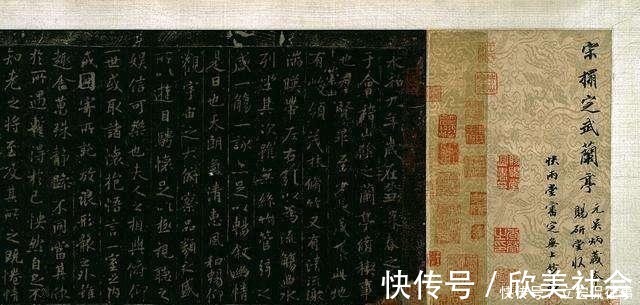 宋搨定武蘭亭
元吴炳藏
賜研堂收
快雨堂審定無上妙
永和九年歲在癸丑暮春之
于會稽山陰之蘭亭脩禊事
也羣賢畢至少長咸集此
有峻領茂林脩竹又有清
湍暎帶左右引以為流觴
列坐其次雖無絲竹管絃
盛一觴一詠亦足以暢敘幽情
是日也天朗氣清惠風和暢仰
觀宇宙之大俯察品類之盛
所以遊目騁懷足以極視聽之
娛信可樂也夫人之相與俯仰
一世或取諸懷抱悟言一室之內
或因寄所託放浪形骸之外雖
趣舍萬殊靜躁不同當其欣
於所遇暫得於己快然自足不
知老之將至及其所之既惓情
快传号 / 欣美社会